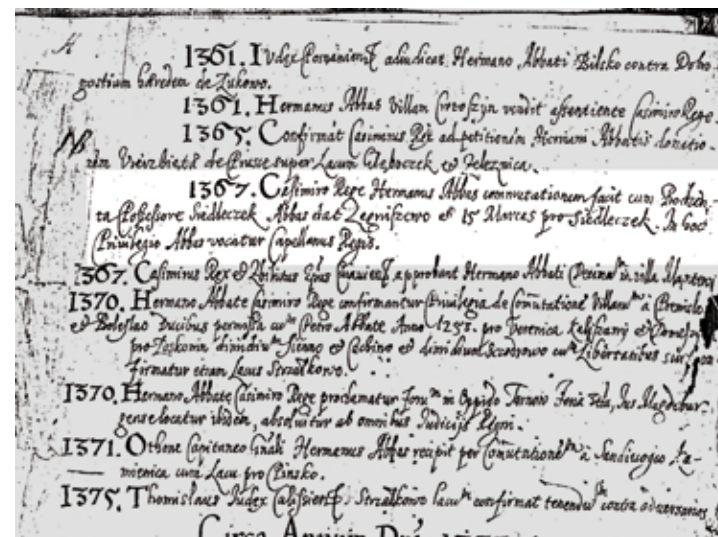 1361. Iudex Posnaniensis adiudicat Hermano Abbati Bilsko contra Dobo
gostium hæredem de Zukowo.
1361. Hermanus Abbas Villam Crotoszyn vendit assentiente Casimiro Rege.
1365. Confirmat Casimirus Rex ad petitionem Hermani Abbatis donatio-
NB
nem Vierzbietæ de Prusce super Lacum Glęboczek et Zeleznica.
1367. Casimiro Rege Hermanus Abbas commutationem facit cum Bocken-
ta Possessore Siedleczek Abbas dat Zegniszewo et 15 Marcas pro Siedleczek. In hoc
Privilegio Abbas vocatur Capellanus Regis.
1367. Casimirus Rex et approbant Hermano Abbati in villa
1370. Hermano Abbate Casimiro Rege confirmantur Privilegia de Comutatione Villarum à Premislo
et Boleslao Ducibus permissa cum Petro Abbate Anno 1258. pro
pro dimidium et Cochino et dimidium cum Libertatibus
firmatur etiam Lacus Strzalkowo.
1370. Hermano Abbate Casimiro Rege proclamatur Forum in Oppido Ius Magdebur
gense locatur ibidem, absolvitur ab omnibus Iudicijs Regni.
1371. Othone Capitaneo Hermanus Abbas recepit per Comutationem à Sandivogio
mienica cum Lacu pro Plinsko.
1375. Thomislaus Iudex Strzalkowo lacum confirmat tenendum contra adversarios
Circa Annum Dni